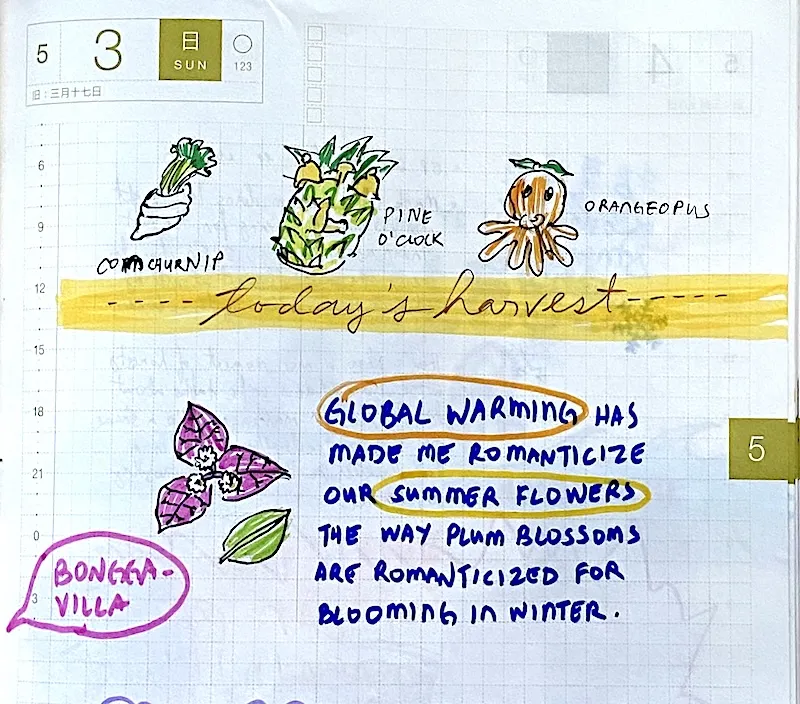 5 3 日 SUN 123
旧:三月十七日
6
9
12
15
18
21
0
3
PINE O'CLOCK
ORANGEOPUS
---- today's harvest -----
GLOBAL WARMING HAS
MADE ME ROMANTICIZE
OUR SUMMER FLOWERS
THE WAY PLUM BLOSSOMS
ARE ROMANTICIZED FOR
BLOOMING IN WINTER.
BONGGA-
VILLA
5